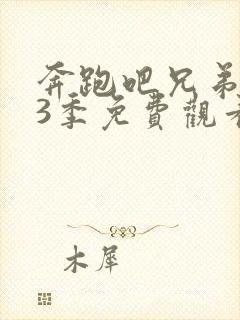 奔跑吧兄弟
3季免費觀看
木犀